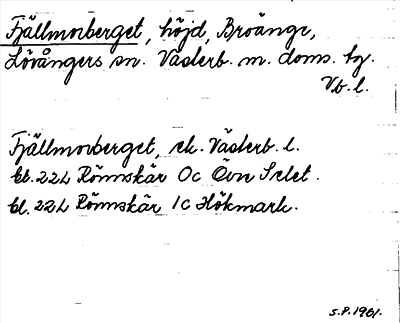 Fjällmorberget, höjd, Broänge,
Lövångers sn. Västerb. m. doms. tg.
Vb. l.
Fjällmorberget, ek. Västerb. l.
bl. 22L Rönnskär 0c Övn Selet.
bl. 22L Rönnskär 1c Hökmark.
S.P. 1981.